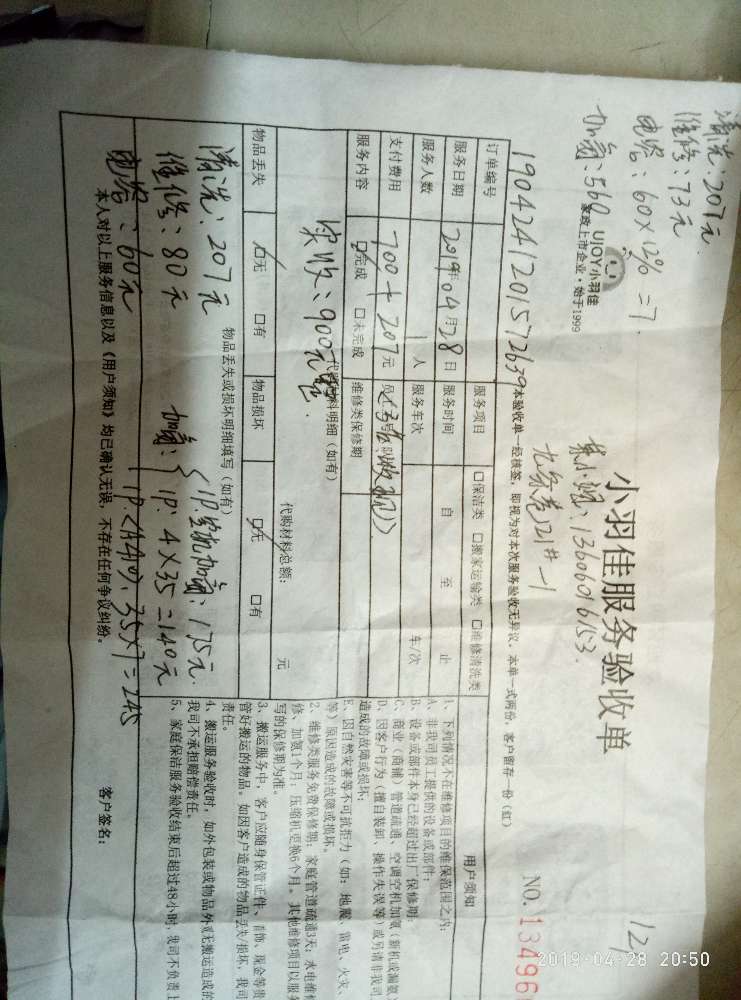 清洗:207元
维修:73元
电容:60×12%=7.
加氟:560
UJOY小羽佳
家政上市企业·始于1999
小羽佳服务验收单
12,
NO.13496
13606016153.
21#-1
1904241201572639
本验收单一经核签,即视为对本次服务验收无异议,本单一式两份,客户留存一份(红)
订单编号
服务项目 □保洁类 □搬家运输类 □维修清洗类
服务日期 2019年04月28日 服务时间 自 至 止
服务人数 1人 服务车次 车/次
支付费用 700+207元
服务内容 ☑完成 □未完成 维修类保修期
代购材料明细(如有)
实收:900元
代购材料总额: 元
物品丢失 ☑无 □有 物品损坏 ☑无 □有
物品丢失或损坏明细填写(如有)
清洗:207元
维修:80元
电容:60元
加氟:
1P.空机加氟:175元.
1P:4×35=140元
1P(R410):35×7=245
本人对以上服务信息以及《用户须知》均已确认无误,不存在任何争议纠纷。
客户签名:
用户须知
1、下列情况不在维修项目的维保范围之内:
A、非我司员工提供的设备或部件;
B、设备或部件本身已经超过出厂保修期;
C、商业(商铺)管道疏通、空调空机加氟(新机或漏氟
D、因客户行为(擅自装卸、操作失误等)或另请非我司
造成的故障或损坏;
E、因自然灾害等不可抗拒力(如:地震、雷电、火灾、
等)原因造成的故障或损坏。
2、维修类服务免费保修期:家庭管道疏通3天;水电维
修、加氨1个月;压缩机更换6个月。其他维修项目以服
写的保修期为准。
3、搬运服务中,客户应随身保管证件、首饰、现金等贵
管好搬运的物品。如因客户造成的物品丢失/损坏,我司
责任。
4、搬运服务验收时,如外包装或物品外观无搬运造成的
我司不承担赔偿责任。
5、家庭保洁服务验收结束后超过48小时,我司不负责上
2019-04-28 20:50